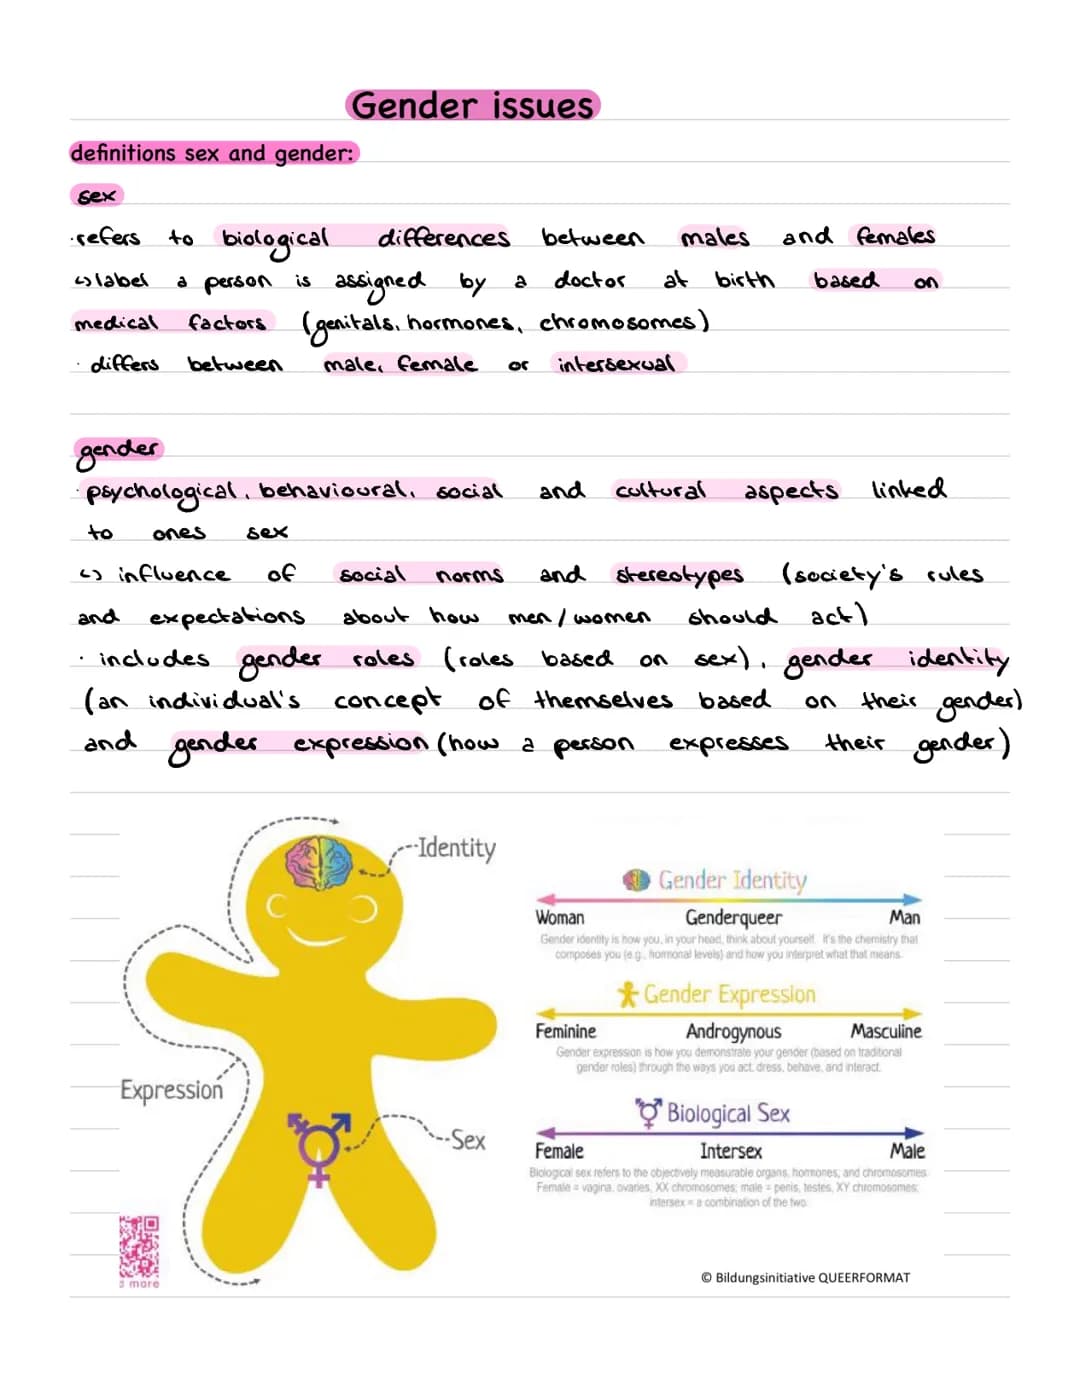 Gender issues
definitions sex and gender:
sex
·refers to biological differences between males and females
↳label a person is assigned by a doctor at birth based on
medical factors (genitals, hormones, chromosomes)
· differs between male, female or intersexual
gender
· psychological, behavioural, social and cultural aspects linked
to ones sex
↳ influence of social norms and stereotypes (society's rules
and expectations about how men/women should act)
· includes gender roles (roles based on sex), gender identity
(an individual's concept of themselves based on their gender)
and gender expression (how a person expresses their gender)
Identity
Expression
Sex
Gender Identity
Woman Genderqueer Man
Gender identity is how you, in your head, think about yourself. It's the chemistry that
composes you (e.g., hormonal levels) and how you interpret what that means.
Gender Expression
Feminine Androgynous Masculine
Gender expression is how you demonstrate your gender (based on traditional
gender roles) through the ways you act, dress, behave, and interact.
Biological Sex
Female Intersex Male
Biological sex refers to the objectively measurable organs, hormones, and chromosomes.
Female = vagina, ovaries, XX chromosomes; male = penis, testes, XY chromosomes;
intersex = a combination of the two.
more
© Bildungsinitiative QUEERFORMAT